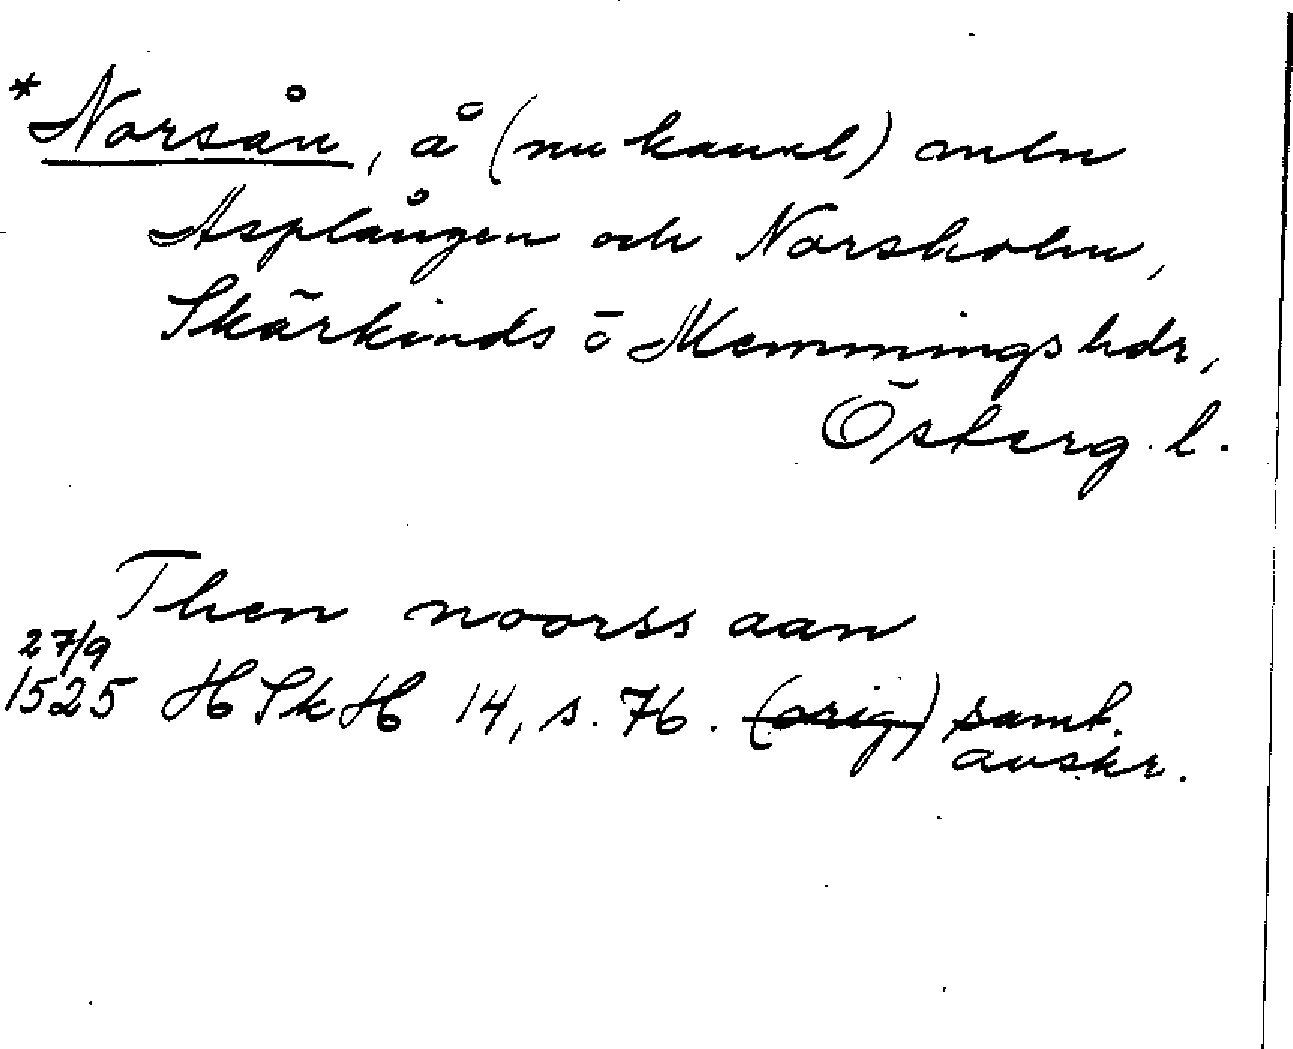 *Norsån, å (nu kanal) mln
Asplången och Norsholm,
Skärkinds o Memmings hdr,
Österg. l.
Then noorss aan
27/9
1525 HSkH 14, s. 76. (orig) samt.
avskr.